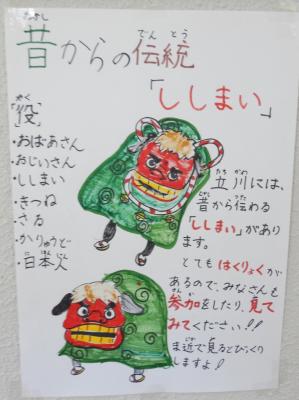 昔からの伝統
「ししまい」
「役」
・おばあさん
・おじいさん
・ししまい
・きつね
・さる
・かりゅうど
・日本人
立川には、
昔から伝わる
「ししまい」があり
ます。
とても はくりょくが
あるので、みなさんも
参加をしたり、見て
みてください!!
ま近で見るとびっくり
しますよ!